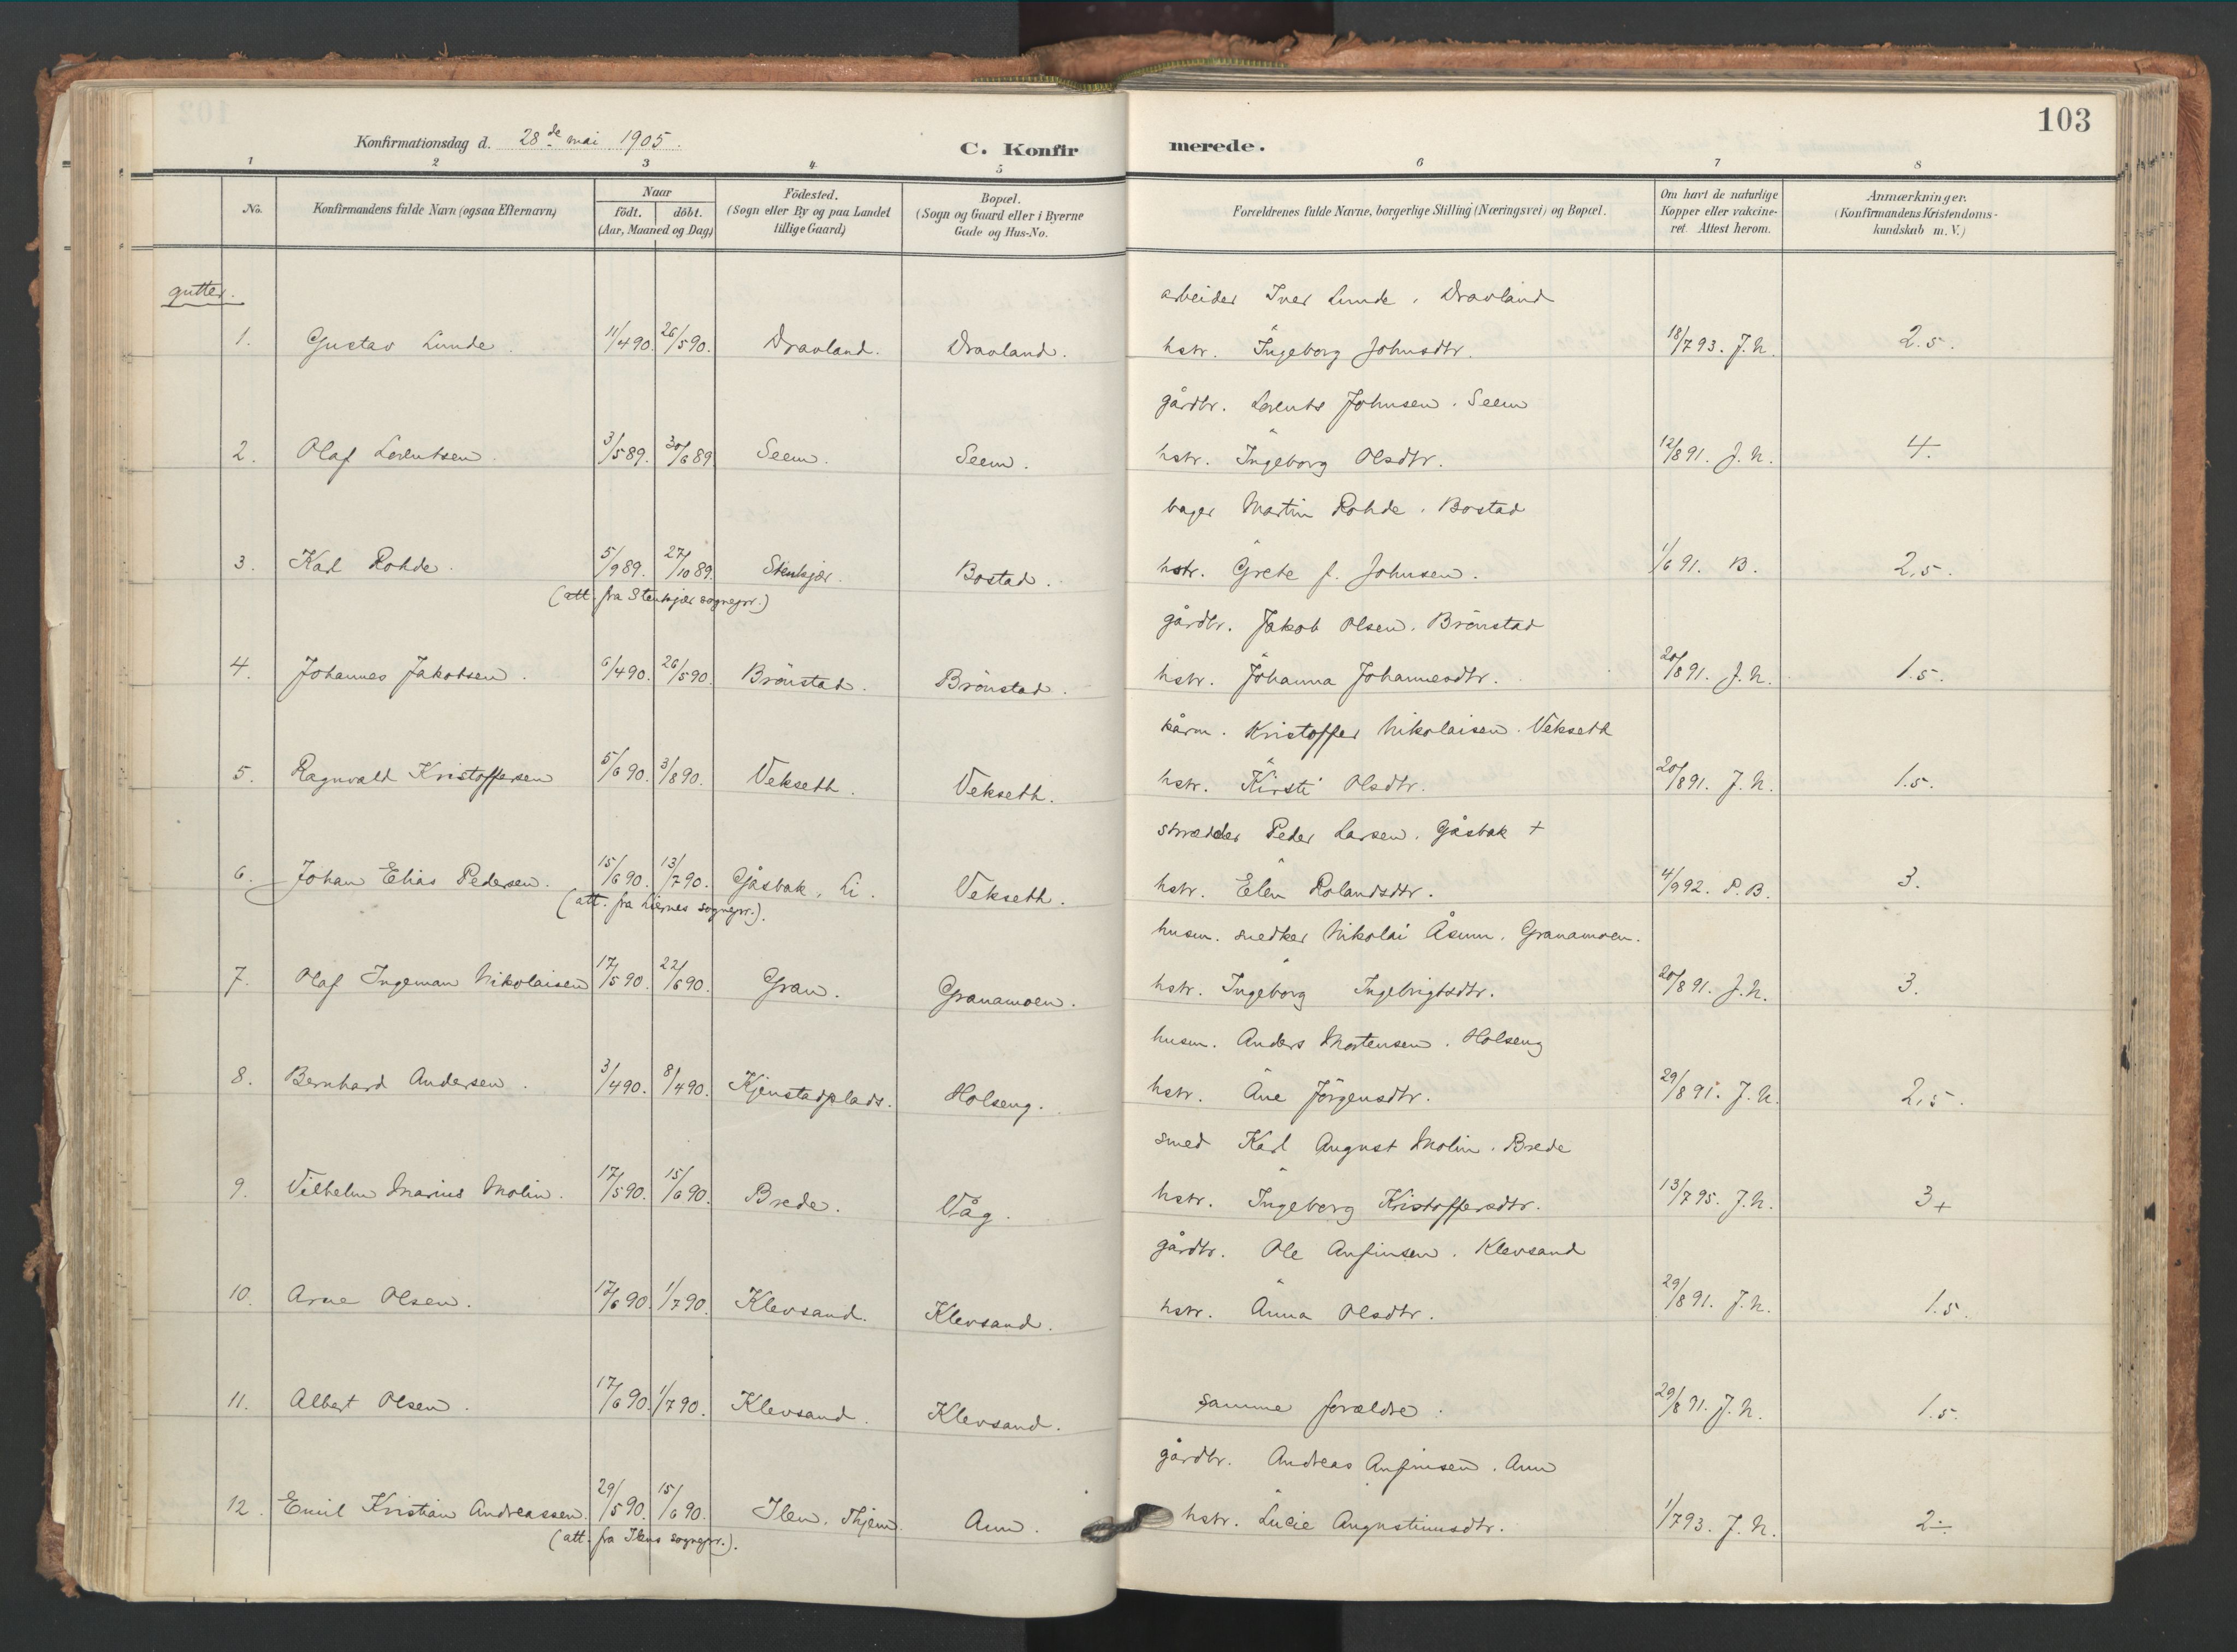 103
Konfirmationsdag d. 28de mai 1905.
C. Konfirmerede.
1 2 3 4 5 6 7 8
No.
Konfirmandens fulde Navn (ogsaa Efternavn)
Naar
födt. döbt.
(Aar, Maaned og Dag)
Födested.
(Sogn eller By og paa Landet
tillige Gaard)
Bopæl.
(Sogn og Gaard eller i Byerne
Gade og Hus-No.
Forældrenes fulde Navne, borgerlige Stilling (Næringsvei) og Bopæl.
Om havt de naturlige
Kopper eller vakcine-
ret. Attest herom.
Anmærkninger.
(Konfirmandens Kristendoms-
kundskab m. V.)
gutter.
arbeider Iver Lunde. Dravland
1. Gustav Lunde. 11/4 90. 26/5 90. Dravland. Dravland. hstr. Ingeborg Johnsdtr. 18/7 93. J.N. 2.5.
gårdbr. Lorents Johnsen. Seem
2. Olaf Lorentsen 3/5 89. 30/6 89. Seem. Seem. hstr. Ingeborg Olsdtr. 12/8 91. J.N. 4.
bager Martin Rohde. Bostad
3. Karl Rohde. 5/9 89. 27/10 89. Stenkjær. Bostad. hstr. Grete f. Johnsen. 1/6 91. B. 2,5.
(att. fra Stenkjær sognepr.)
gårdbr. Jakob Olsen. Brönstad
4. Johannes Jakobsen. 6/4 90. 26/5 90. Brönstad. Brönstad. hstr. Johanna Johannesdtr. 20/8 91. J.N. 1.5.
kårm. Kristoffer Nikolaisen. Vekseth
5. Ragnvald Kristoffersen 5/6 90. 3/8 90. Vekseth. Vekseth. hstr. Kirsti Olsdtr. 20/8 91. J.N. 1.5.
skrædder Peder Larsen. Gåsbak +
6. Johan Elias Pedersen. 15/6 90. 13/7 90. Gåsbak, Li. Vekseth. hstr. Elen Rolandsdtr. 4/9 92. P.B. 3.
(att. fra Liernes sognepr.).
husm. snedker Nikolai Åsum. Granamoen.
7. Olaf Ingeman Nikolaisen 17/5 90. 22/6 90. Gran. Granamoen. hstr. Ingeborg Ingebrigtsdtr. 20/8 91. J.N. 3.
husm. Anders Mortensen. Holseng
8. Bernhard Andersen. 3/4 90. 8/4 90. Kjenstadplads. Holseng. hstr. Ane Jörgensdtr. 29/8 91. J.N. 2,5.
smed Karl August Molin. Brede
9. Vilhelm Marius Molin. 17/5 90. 15/6 90. Brede. Våg. hstr. Ingeborg Kristoffersdtr. 13/7 95. J.N. 3+
gårdbr. Ole Anfinsen. Klevsand
10. Arne Olsen. 17/6 90. 1/7 90. Klevsand. Klevsand. hstr. Anna Olsdtr. 29/8 91. J.N. 1.5.
11. Albert Olsen. 17/6 90. 1/7 90. Klevsand. Klevsand. samme forældre. 29/8 91. J.N. 1.5.
gårdbr. Andreas Anfinsen. Aun
12. Emil Kristian Andreassen. 29/5 90. 15/6 90. Ilen, Thjem. Aun. hstr. Lucie Augustinusdtr. 1/7 93. J.N. 2÷.
(att. fra Ilens sognepr.).